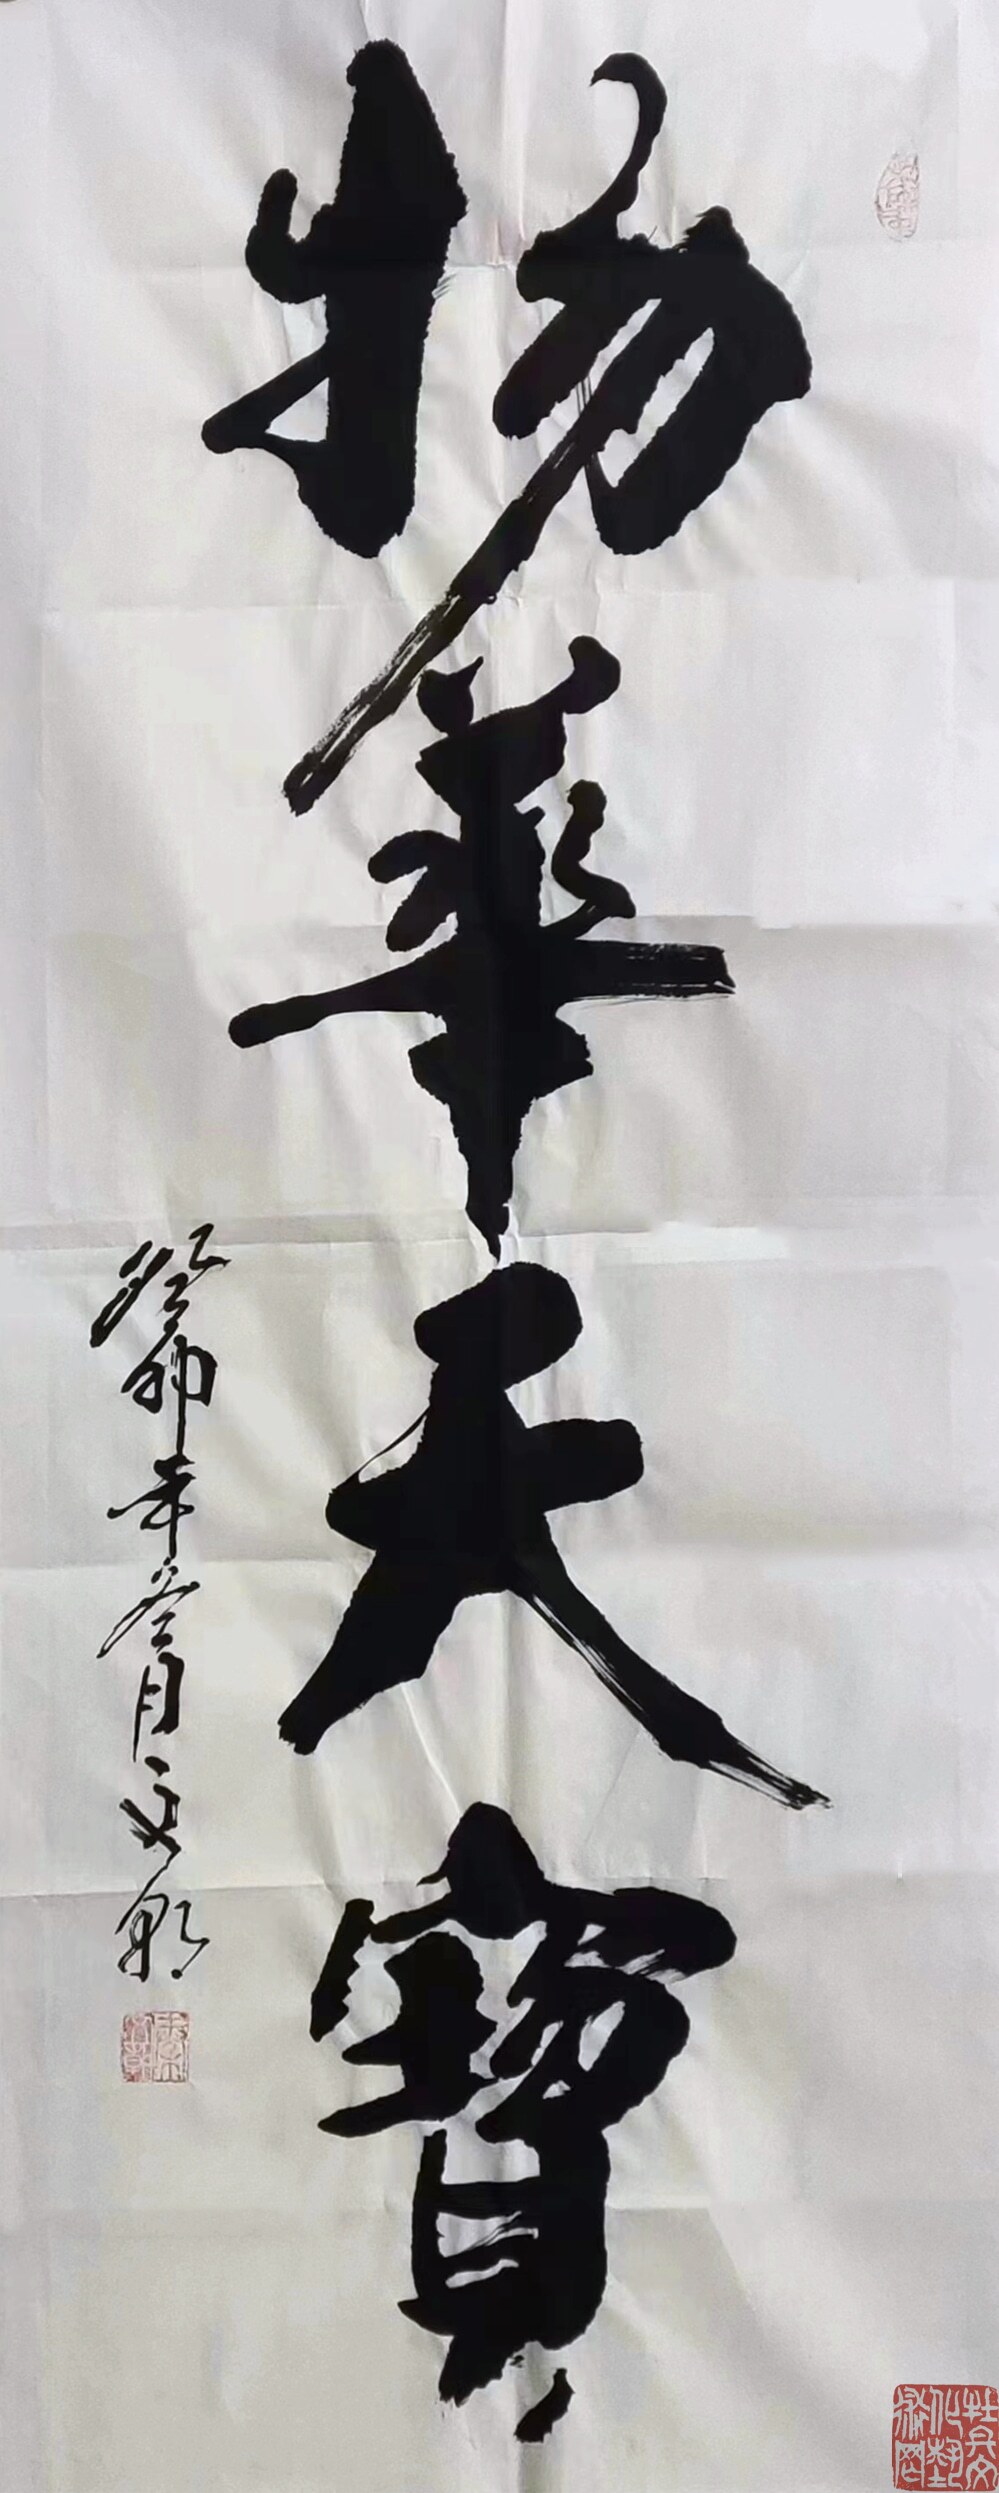 物華天寶
癸卯年叁月文朝